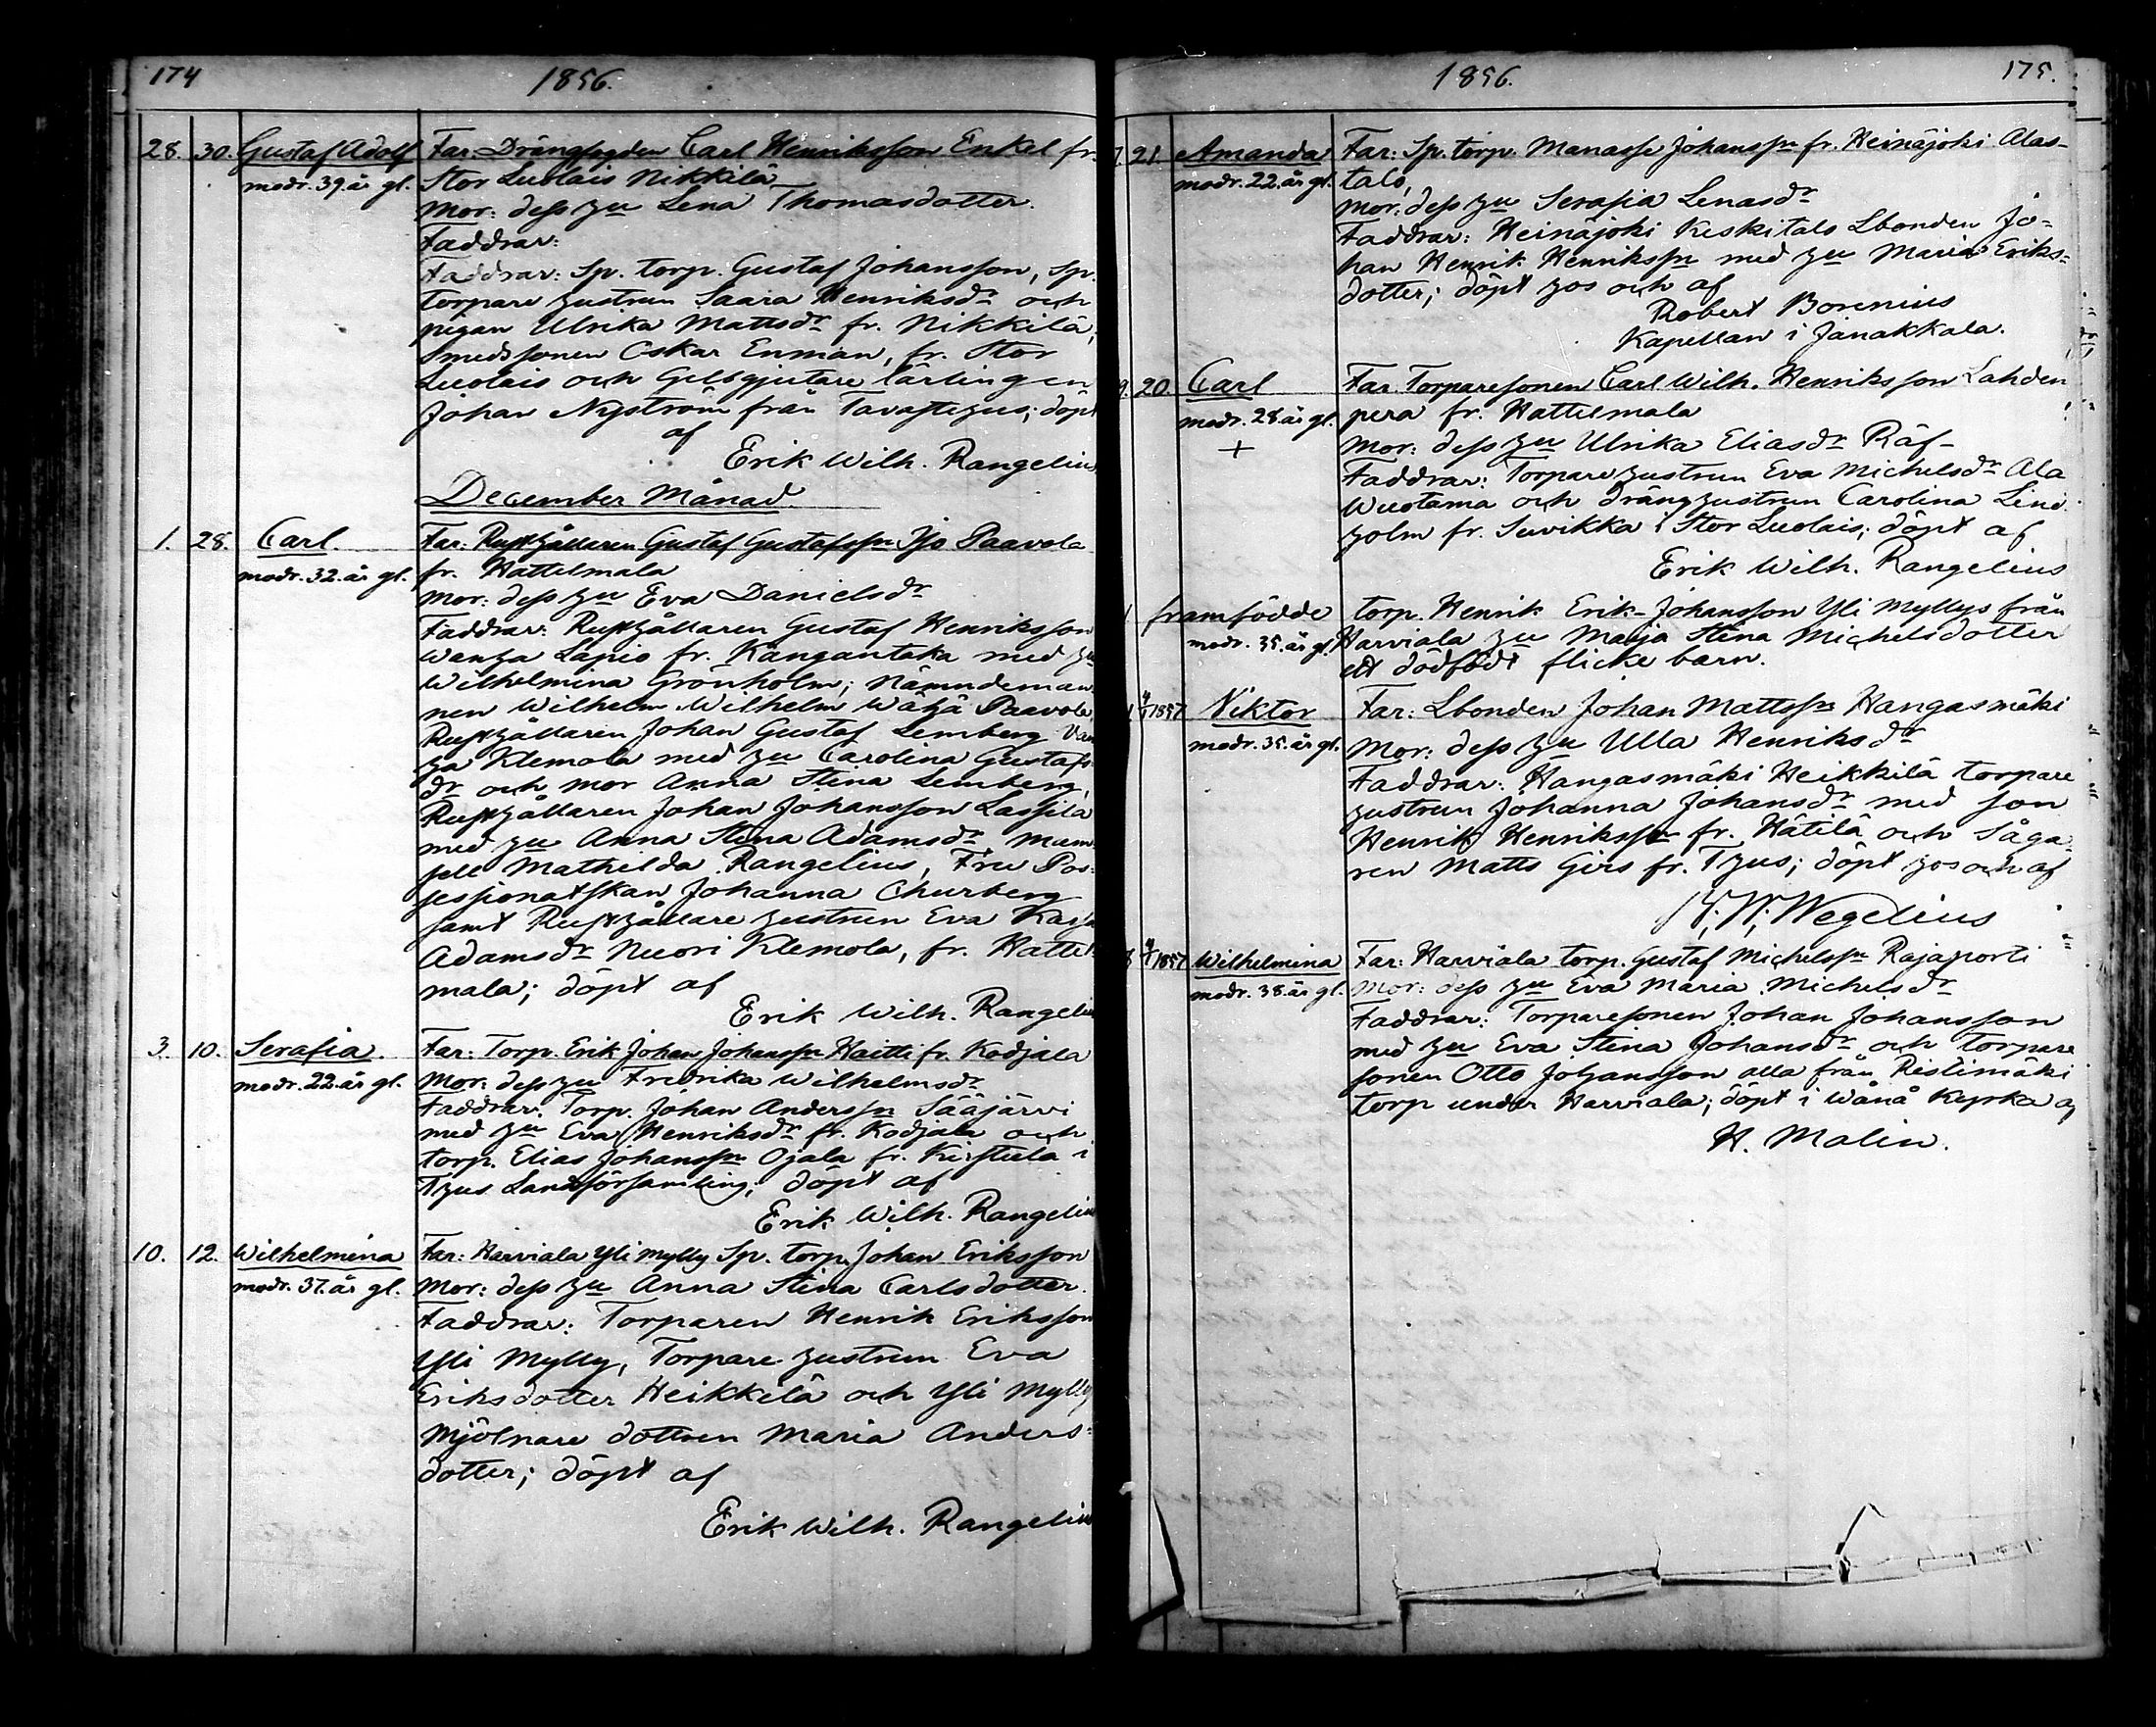 174
1856.
28. 30. Gustaf Adolf Far: Drängfogden Carl Henriksson Enkel fr.
modr. 39. år gl. Stor Luolais Nikkilä
Mor: dess hu Lena Thomasdotter.
Faddrar:
Faddrar: Sp. torp. Gustaf Johansson, Sp.
torpare hustrun Saara Henriksdr och
pigan Ulrika Mattsdr fr. Nikkilä,
Smedssonen Oskar Enman, fr. Stor
Luolais och Gelbgjutare lärlingen
Johan Nyström från Tavastehus; döpt
af
Erik Wilh. Rangelius
December Månad.
1. 28. Carl. Far: Rusthållaren Gustaf Gustafssn Iso Paavola
modr. 32. år gl. fr. Hattelmala
Mor: dess hu Eva Danielsdr
Faddrar: Rusthållaren Gustaf Henriksson
Wanha Lapio fr. Kangantaka med hu
Wilhelmina Grönholm; Nämndeman-
nen Wilhelm Wilhelm Wähä Paavola,
Rusthållaren Johan Gustaf Lemberg Van
ha Klemola med hu Carolina Gustafs-
dr och mor Anna Stina Lemberg,
Rusthållaren Johan Johansson Lassila
med hu Anna Stina Adamsdr, Mam-
sell Mathilda Rangelius, Fru Pos-
sessionatskan Johanna Churberg
samt Rusthållare hustrun Eva Kajsa
Adamsdr Nuori Klemola, fr. Hattel-
mala; döpt af
Erik Wilh. Rangelius
3. 10. Serafia. Far: Torp. Erik Johan Johanssn Haitti fr. Kodjala
modr. 22. år gl. Mor: dess hu Fredrika Wilhelmsdr
Faddrar. Torp. Johan Anderssn Sääjärvi
med hu Eva Henriksdr fr. Kodjala och
torp. Elias Johanssn Ojala fr. Kirstula i
Thus Landsförsamling; döpt af
Erik Wilh. Rangelius
10. 12. Wilhelmina Far: Harviala Yli Mylly Sp. torp. Johan Eriksson
modr. 37. år gl. Mor: dess hu Anna Stina Carlsdotter.
Faddrar: Torparen Henrik Eriksson
Yli Mylly, Torpare hustrun Eva
Eriksdotter Heikkilä och Yli Mylly
Mjölnare dottren Maria Anders-
dotter; döpt af
Erik Wilh. Rangelius
1856.
175.
7. 21 Amanda Far: Sp. torp. Manasse Johanssn fr. Heinäjoki Alas-
modr. 22. år gl. talo,
Mor: dess hu Serafia Lenasdr
Faddrar: Heinäjoki Keskitalo Lbonden Jo-
han Henrik Henrikssn med hu Maria Eriks-
dotter; döpt hos och af
Robert Borenius
Kapellan i Janakkala.
9. 20. Carl Far. Torparesonen Carl Wilh. Henriksson Lahden
modr. 28. år gl. pera fr. Hattelmala
+ Mor: dess hu Ulrika Eliasdr Räf-
Faddrar: Torparehustrun Eva Michelsdr Ala
Wuotama och dränghustrun Carolina Lind-
holm fr. Suvikka i Stor Luolais; döpt af
Erik Wilh. Rangelius
1 framfödde torp. Henrik Erik-Johansson Yli Myllys från
modr. 35. år gl. Harviala hu Maija Stina Michelsdotter
ett dödfödt flicke barn.
1 4/1 1857 Viktor Far: Lbonden Johan Mattssn Hangasmäki
modr. 35. år gl. Mor: dess hu Ulla Henriksdr
Faddrar: Hangasmäki Heikkilä torpare
hustrun Johanna Johansdr med son
Henrik Henrikssn fr. Hätilä och Såga-
ren Matts Girs fr. Thus; döpt hos och af
Wegelius
8 4/1 1857 Wilhelmina Far: Harviala torp. Gustaf Michelssn Rajaportti
modr. 38. år gl. Mor: dess hu Eva Maria Michelsdr
Faddrar: Torparesonen Johan Johansson
med hu Eva Stina Johansdr och torpare
sonen Otto Johansson alla från Ristimäki
torp under Harviala; döpt i Wånå Kyrka af
H. Malin.